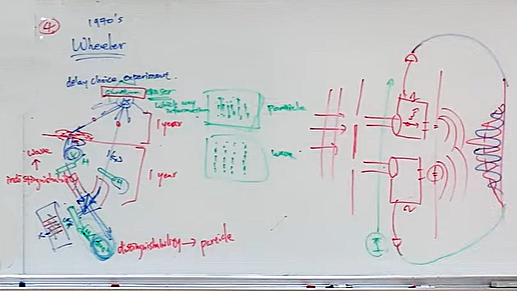 ④ 1970's
Wheeler
delay choice experiment.
quantum eraser
which way
information
particle
wave
1 year
1 year
wave
indistinguishability
H
distinguishability → particle